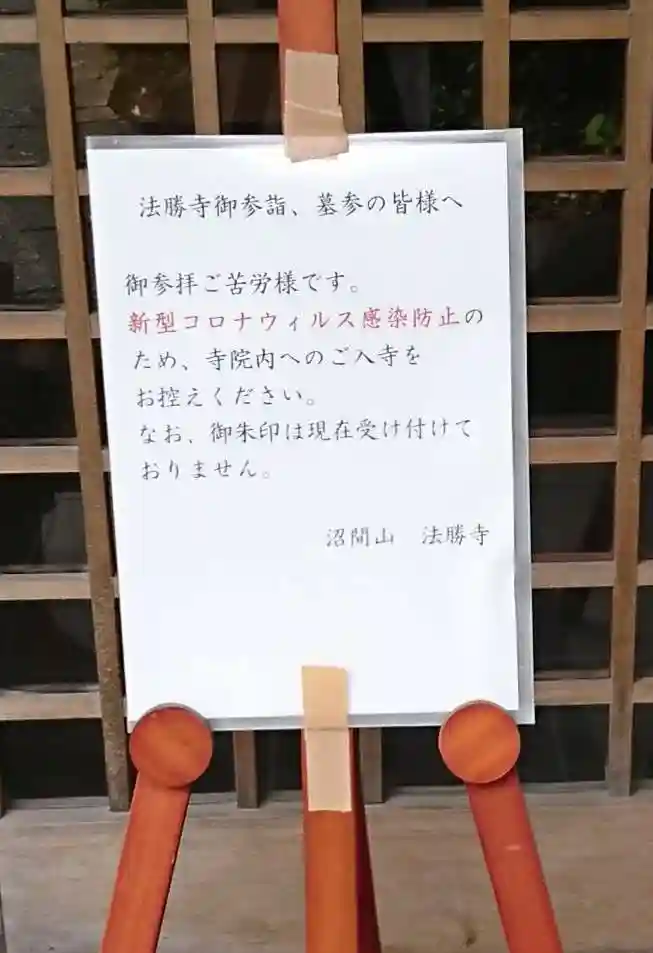 法勝寺御参詣、墓参の皆様へ
御参拝ご苦労様です。
新型コロナウィルス感染防止の
ため、寺院内へのご入寺を
お控えください。
なお、御朱印は現在受け付けて
おりません。
沼間山　法勝寺